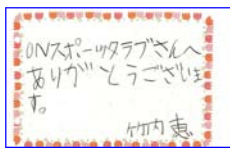 ONスポーツクラブさんへ
ありがとうございま
す。
竹内 恵